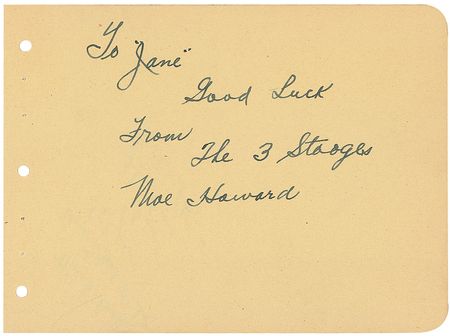 To "Jane"
Good Luck
From
The 3 Stooges
Moe Howard